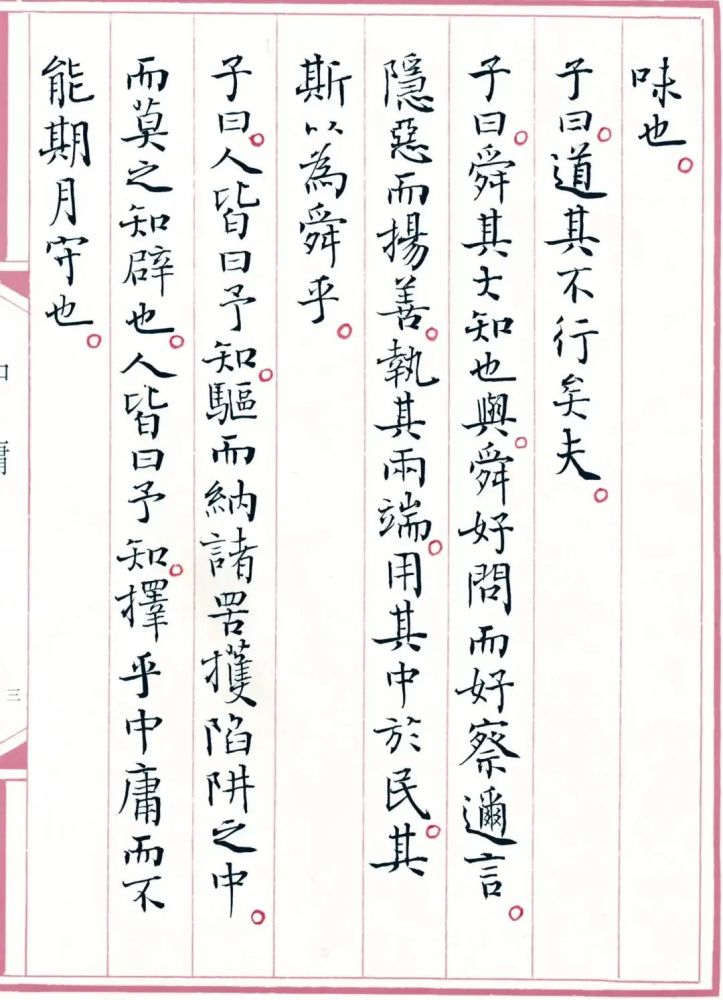 味也。
子曰。道其不行矣夫。
子曰。舜其大知也與。舜好問而好察邇言。
隱惡而揚善。執其兩端。用其中於民。其
斯以為舜乎。
子曰。人皆曰予知。驅而納諸罟擭陷阱之中。
而莫之知辟也。人皆曰予知。擇乎中庸而不
能期月守也。
中庸
三